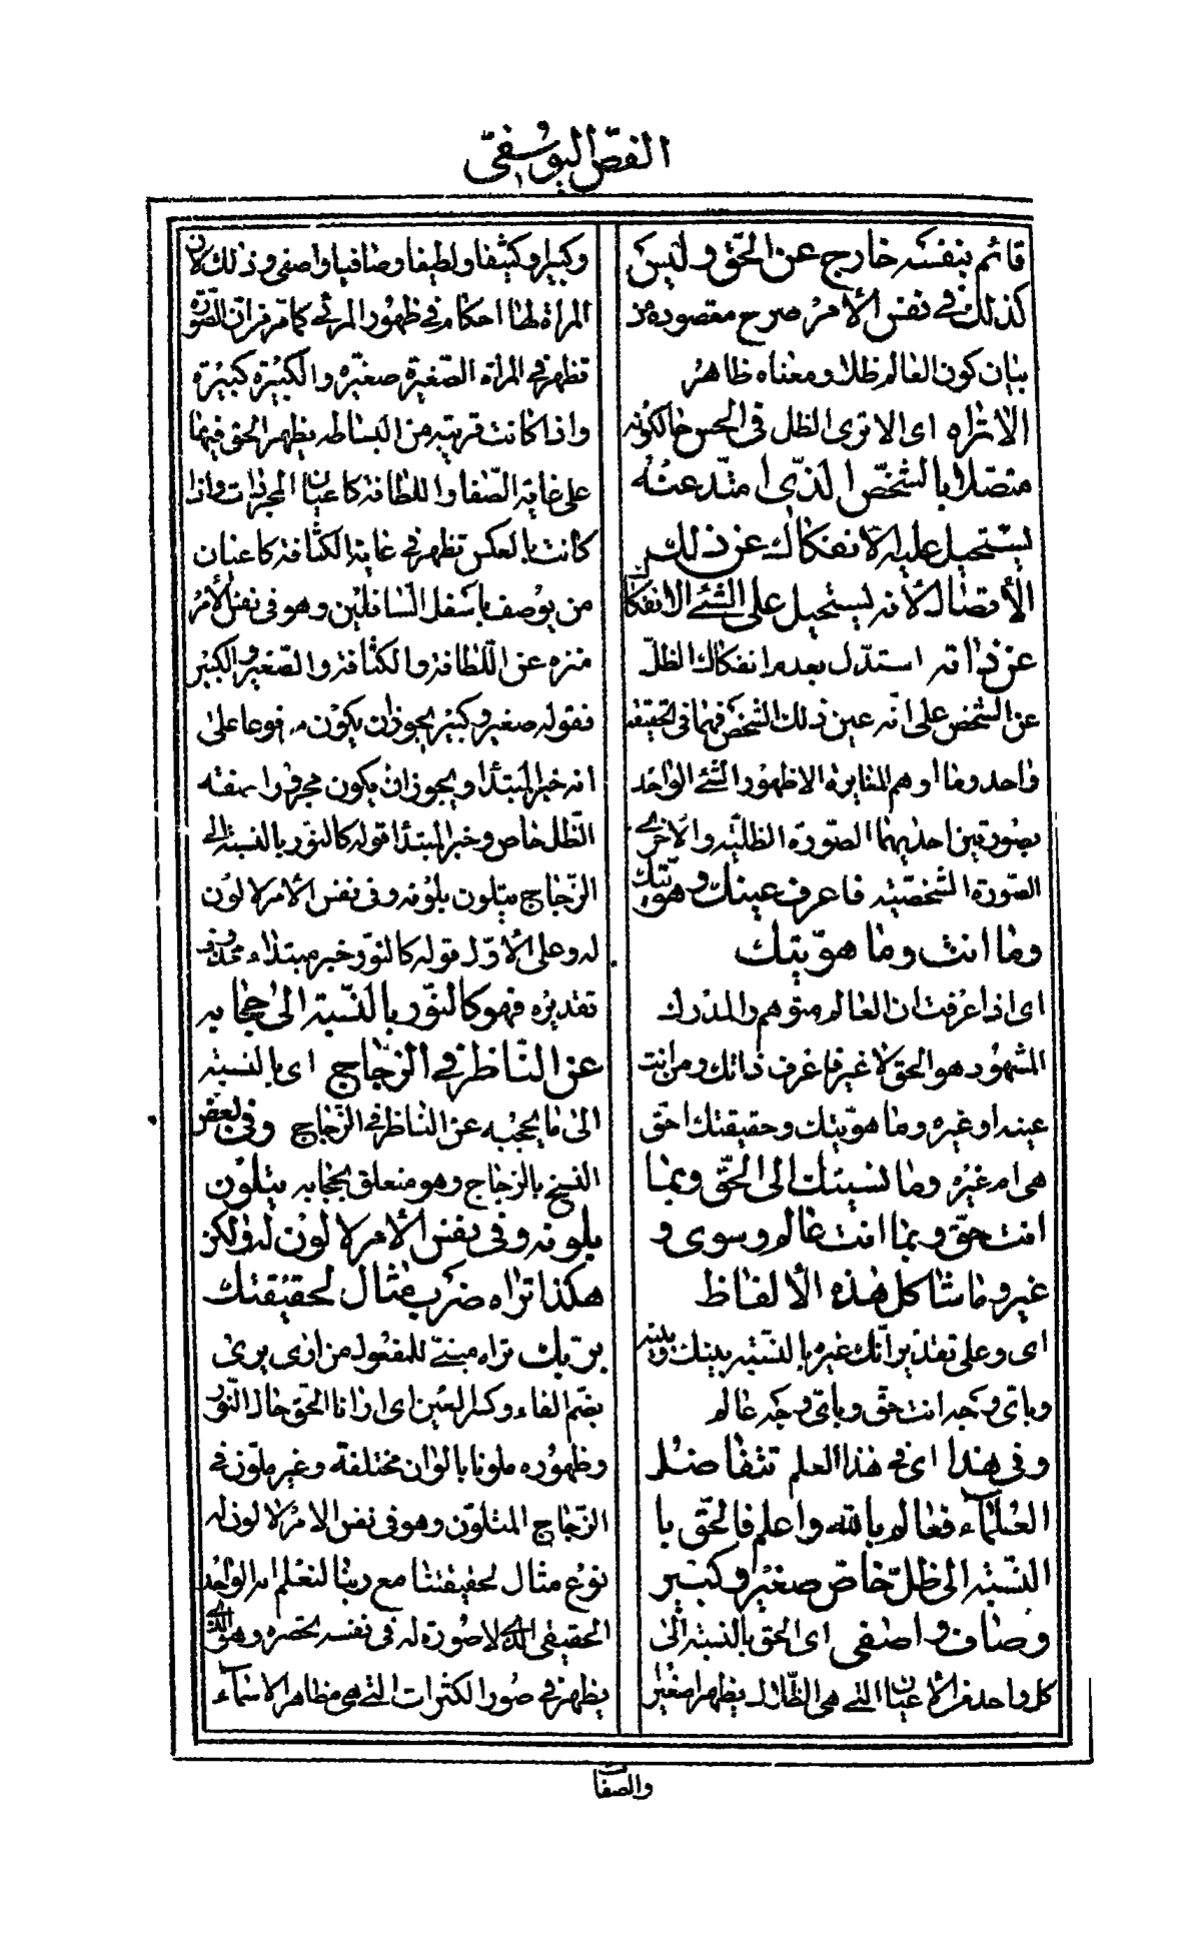 الفصّ اليوسفىّ
قائم بنفسه خارج عن الحقّ وليس
كذلك فى نفس الأمر صرح مقصوده من
بيان كون العالم ظلاله ومعناه ظاهر
الا تراه اى الا ترى الظل فى الحس حال كونه
متصلا بالشخص الذى امتد عنه
يستحيل عليه الانفكاك عن ذلك
الأتصال لأنه يستحيل على الشئ الانفكاك
عن ذاته استدل بعدم انفكاك الظلّ
عن الشخص على انّه عين ذلك الشخص فهما فى الحقيقة
واحد وما اوهم المغايرة الا ظهور الشئ الواحد
بصورتين احديهما الصّورة الظلّية والأخرى
الصّورة الشخصّية فاعرف عينك وهويّتك
وما انت وما هويّتك
اى اذا عرفت ان العالم متوهم والمدرك
المشهود هو الحق لا غير فاعرف ذاتك ومن انت
عينه او غيره وما هويّتك وحقيقتك احقّ
هى ام غيره وما نسبتك الى الحقّ وبما
انت حقّ وبما انت عالم وسوى و
غير وما شاكل هذه الألفاظ
اى وعلى تقدير انّك غيره بالنسّبة بينك وبينه
وباىّ وجه انت حقّ وباىّ وجه عالم
وفى هذا اى فى هذا العلم تتفاضل
العلماء فعالم بالله واعلم فالحقّ با
النسّبة الى ظلّ خاصّ صغير وكبير
وصاف واصفى اى الحق بالنسبة الى
كل واحد من الأعيان التى هى الظّلال يظهر صغيرا
وكبيرا وكثيفا ولطيفا وصافيا واصفى وذلك لان
المرأة لها احكام فى ظهور المرئى كما مر من ان الصّورة
تظهر فى المرأة الصّغيرة صغيرة والكبيرة كبيرة
واذا كانت قريبة من البساطه يظهر الحق فيها
على غاية الصّفا واللطافة كاعيان المجردات واذا
كانت بالعكس تظهر فى غاية الكثافة كاعيان
من يوصف باسفل السّافلين وهو فى نفس الأمر
منزه عن اللّطافة والكثافة والصّغير والكبير
فقوله صغير وكبير يجوز ان يكون مرفوعا على
انه خبر المبتدا ويجوز ان يكون مجرورا صفة
الظّل خاص وخبر المبتدا قوله كالنّور بالنسبة الى
الزّجاج يتلون بلونه وفى نفس الأمر لا لون
له وعلى الأوّل قوله كالنّور خبر مبتداء محذوف
تقديره فهو كالنّور بالنّسبة الى حجابه
عن النّاظر فى الزّجاج اى بالنسبة
الى ما يحجبه عن النّاظر فى الزّجاج وفى بعض
النسخ بالزجاج وهو متعلق بحجابه يتلون
بلونه وفى نفس الأمر لا لون له ولكن
هكذا تراه ضرب مثال لحقيقتك
بربّك تراه مبنىّ للمفعول من ارى يرى
بضّم الفاء وكسر العين اى ارانا الحق حال النّور
وظهوره ملونا بالوان مختلفة وغير ملوّن فى
الزّجاج المتلوّن وهو فى نفس الامر لا لون له
نوع مثال لحقيقتنا مع ربنا لنعلم ان الواحد
الحقيقى الذى لا صورة له فى نفسه تحصره وهو الذى
يظهر فى صور الكثرات التى هى مظاهر الاسماء
والصفات